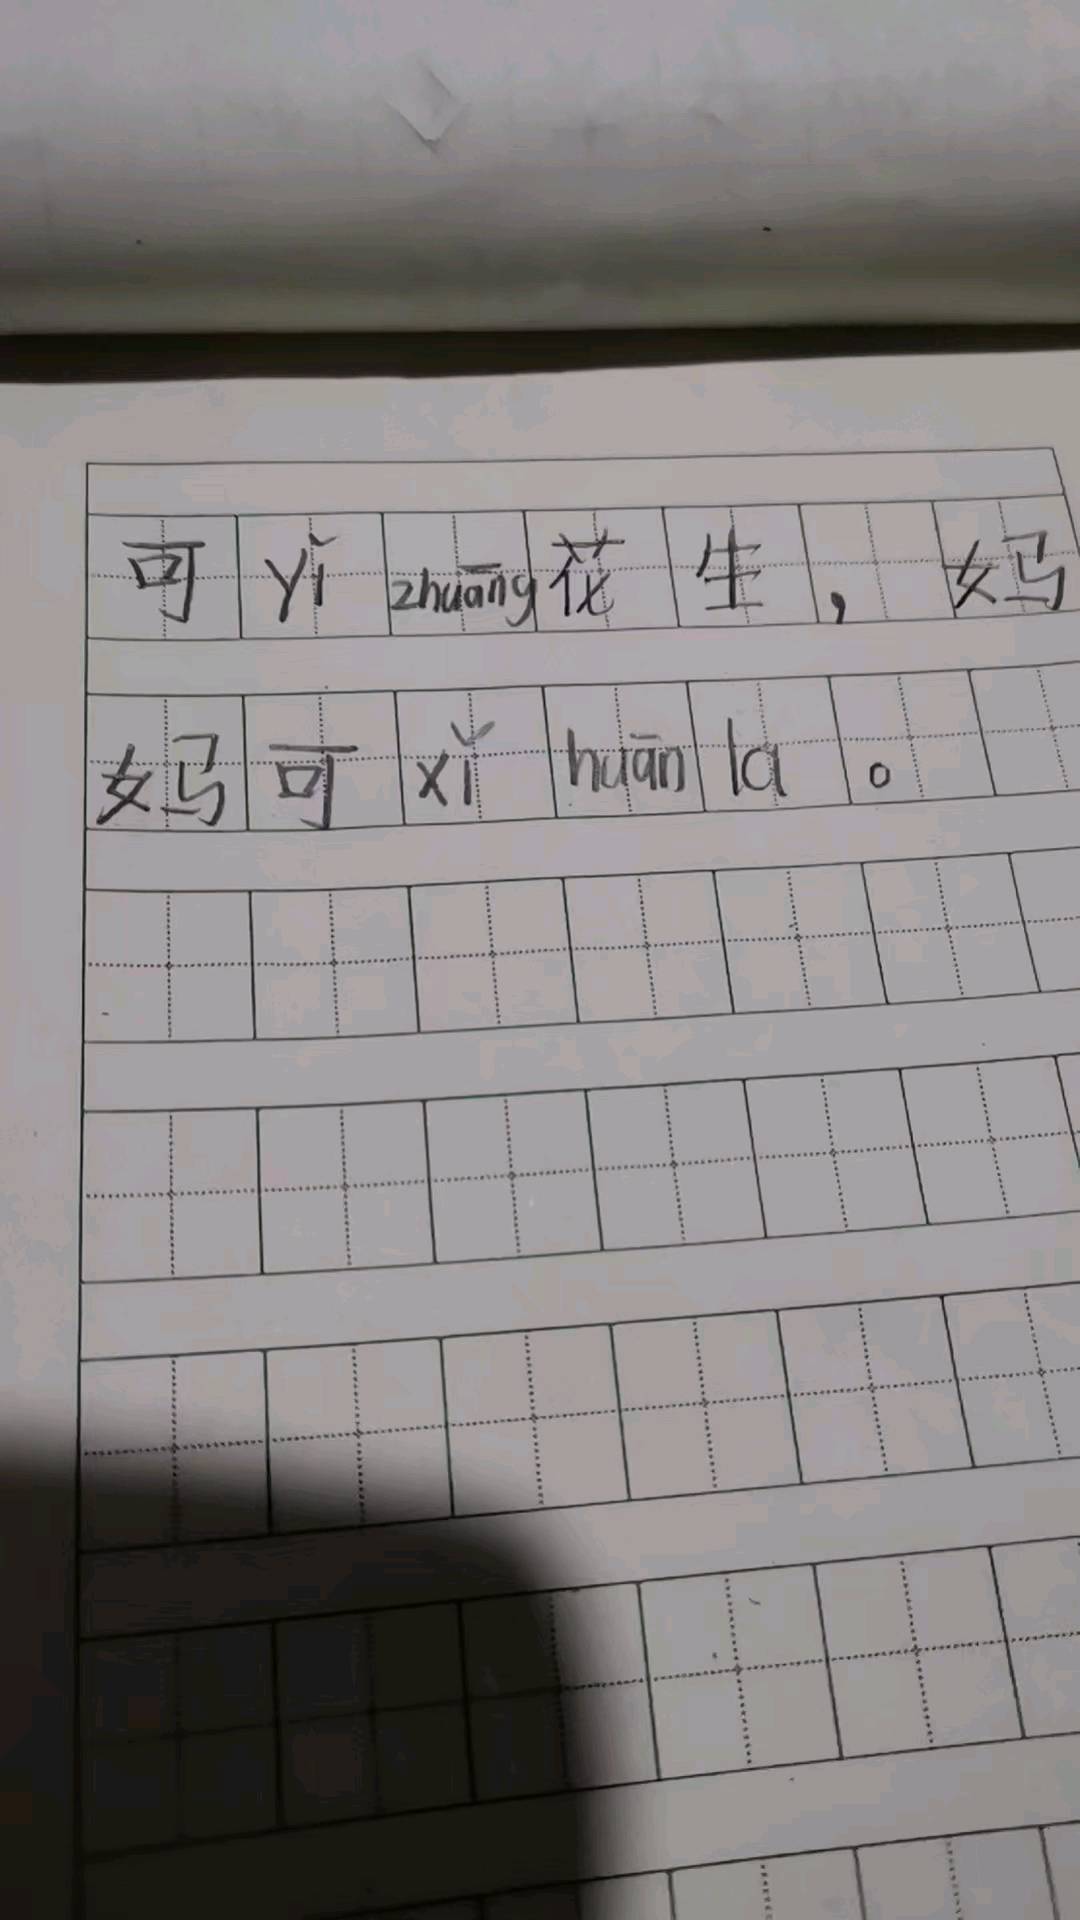 可 yǐ zhuāng 花生，妈
妈可 xǐ huān la 。